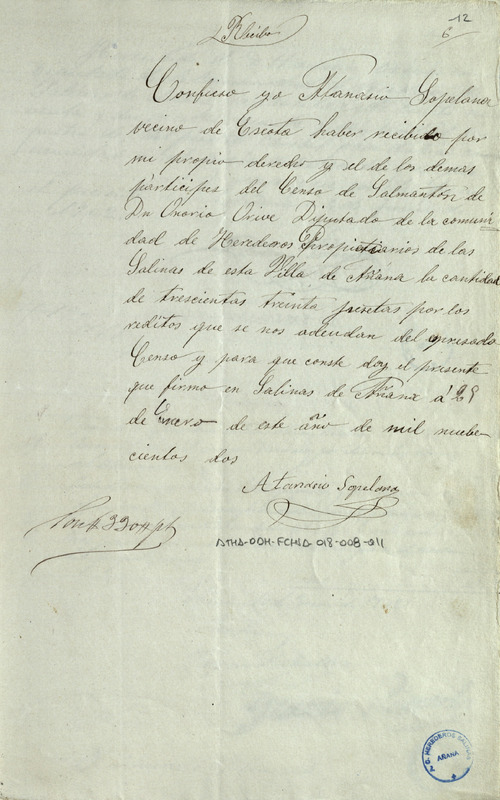 12
6
Recibo
Confieso yo Atanasio Sopelana
vecino de Escota haber recibido por
mi propio derecho y el de los demas
participes del Censo de Salmanton de
Dn Onorio Orive Diputado de la comuni
dad de Herederos Propietarios de las
Salinas de esta Villa de Añana la cantidad
de trescientas treinta pesetas por los
reditos que se nos adeudan del epresado
Censo y para que conste doy el presente
que firmo en Salinas de Añana á 25
de Enero de este año de mil nuebe-
cientos dos
Atanasio Sopelana
Son # 330 # pts
ATHA-DOH-FCHSA-018-008-011
HEREDEROS SALINAS
AÑANA